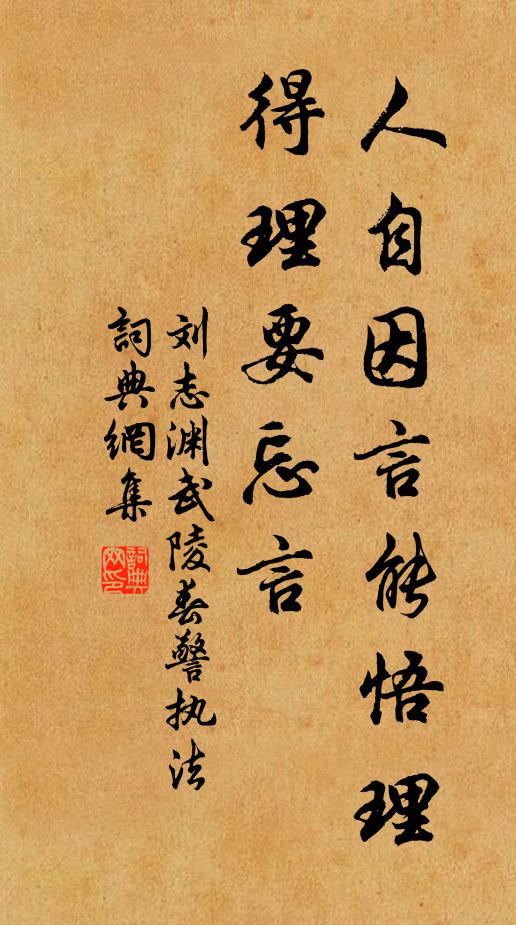 人自因言能悟理
得理要忘言
刘志渊武陵春警执法
詞典網集
詞典網印